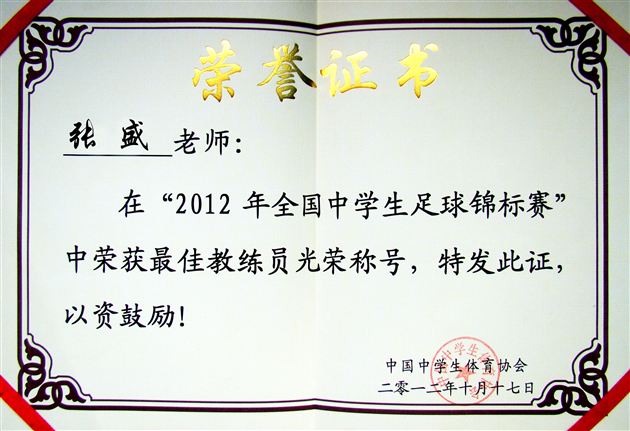 荣誉证书
张盛老师：
在“2012年全国中学生足球锦标赛”
中荣获最佳教练员光荣称号，特发此证，
以资鼓励！
中国中学生体育协会
二零一二年十月十七日